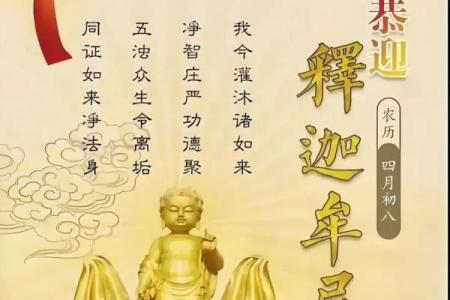 恭迎
釋迦牟
农历
四月初八
我今灌沐诸如来
凈智庄严功德聚
五浊众生令离垢
同证如来凈法身